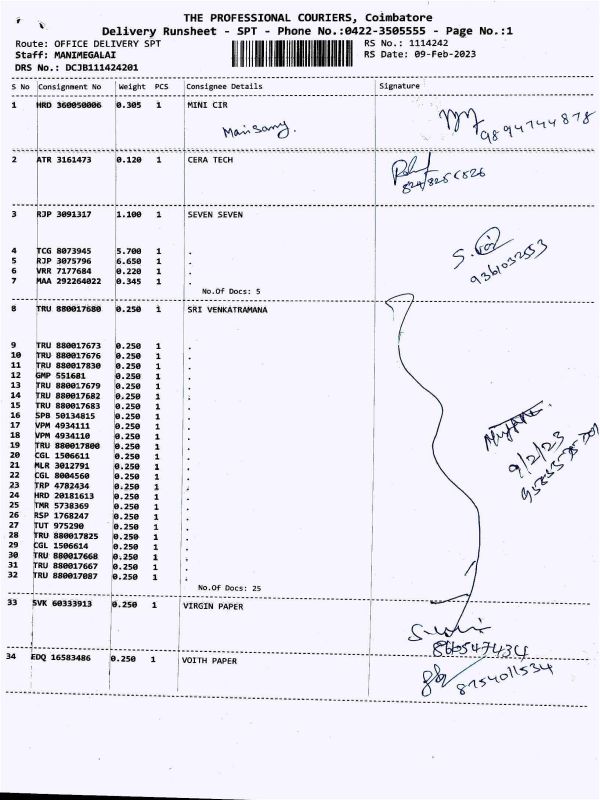 THE PROFESSIONAL COURIERS, Coimbatore
Delivery Runsheet - SPT - Phone No.:0422-3505555 - Page No.:1
Route: OFFICE DELIVERY SPT RS No.: 1114242
Staff: MANIMEGALAI RS Date: 09-Feb-2023
DRS No.: DCJB111424201
S No Consignment No Weight PCS Consignee Details Signature
1 HRD 360050006 0.305 1 MINI CIR
9894744878
2 ATR 3161473 0.120 1 CERA TECH
3 RJP 3091317 1.100 1 SEVEN SEVEN
4 TCG 8073945 5.700 1 .
5 RJP 3075796 6.650 1 .
6 VRR 7177684 0.220 1 .
7 MAA 292264022 0.345 1 .
9361032553
No.Of Docs: 5
8 TRU 880017680 0.250 1 SRI VENKATRAMANA
9 TRU 880017673 0.250 1 .
10 TRU 880017676 0.250 1 .
11 TRU 880017830 0.250 1 .
12 GMP 551681 0.250 1 .
13 TRU 880017679 0.250 1 .
14 TRU 880017682 0.250 1 .
15 TRU 880017683 0.250 1 .
16 SPB 50134815 0.250 1 .
17 VPM 4934111 0.250 1 .
18 VPM 4934110 0.250 1 .
19 TRU 880017800 0.250 1 .
20 CGL 1506611 0.250 1 .
21 MLR 3012791 0.250 1 .
22 CGL 8004560 0.250 1 .
9/2/23
23 TRP 4782434 0.250 1 .
24 HRD 20181613 0.250 1 .
25 TMR 5738369 0.250 1 .
26 RSP 1768247 0.250 1 .
27 TUT 975290 0.250 1 .
28 TRU 880017825 0.250 1 .
29 CGL 1506614 0.250 1 .
30 TRU 880017668 0.250 1 .
31 TRU 880017667 0.250 1 .
32 TRU 880017087 0.250 1 .
No.Of Docs: 25
33 SVK 60333913 0.250 1 VIRGIN PAPER
34 EDQ 16583486 0.250 1 VOITH PAPER
8754011534